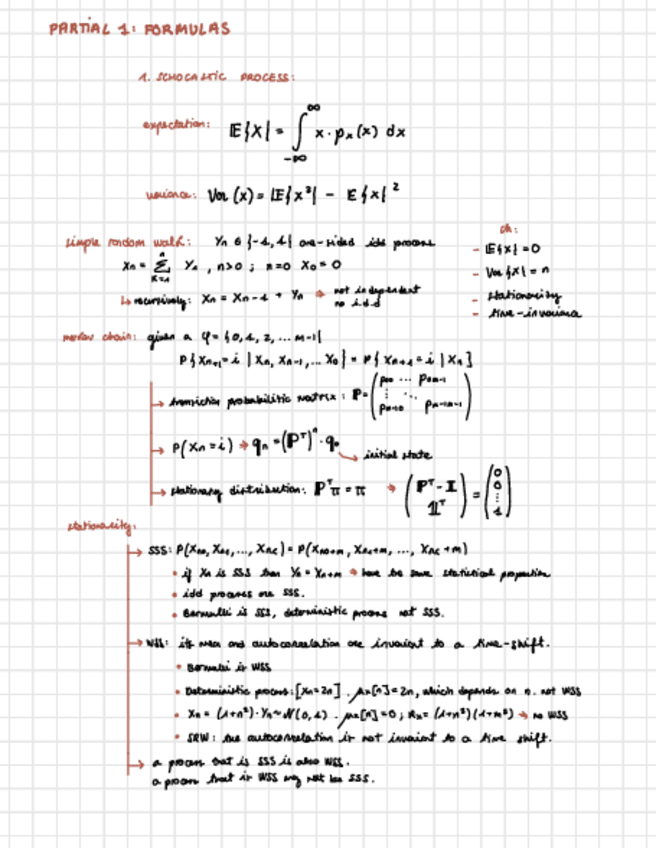 PARTIAL 1: FORMULAS
1. SCHOCASTIC PROCESS:
expectation: E{X} = ∫_{-∞}^{∞} x · pₓ(x) dx
variance: Var (x) = E{x²} - E{x}²
simple random walk: Yₙ ∈ {-1, 1} one-sided idd process
Xₙ = Σ_{k=1}^{n} Yₙ , n>0 ; n=0 X₀=0
↳ recursively: Xₙ = Xₙ₋₁ + Yₙ → not independent
no i.d.d
- E{x} = 0
- Var {x} = n
- stationarity
- time-invariance
markov chain: given a φ = {0, 1, 2, ... m-1}
P{Xₙ₊₁=i | Xₙ, Xₙ₋₁, ... X₀} = P{Xₙ₊₁=i | Xₙ}
→ transition probabilistic matrix : P = ( p₀₀ ... p₀ₘ₋₁ ⋮ ⋱ pₘ₋₁₀ pₘ₋₁ₘ₋₁ )
→ P(Xₙ=i) → qₙ = (Pᵀ)ⁿ · q₀
→ initial state
→ stationary distribution: Pᵀπ = π → ( Pᵀ - I 𝟙ᵀ ) = ( 0 0 ⋮ 1 )
stationarity:
→ SSS: P(Xₙ₀, Xₙ₁, ..., Xₙc) = P(Xₙ₀+m, Xₙ₁+m, ..., Xₙc+m)
• if Xₙ is SSS then Yₙ = Xₙ+m → have the same statistical properties
• idd processes are SSS.
• Bernoulli is SSS, deterministic process not SSS.
→ WSS: its mean and autocorrelation are invariant to a time-shift.
• Bernoulli is WSS
• Deterministic process: [Xₙ=2n] . μₓ[n] = 2n, which depends on n. not WSS
• Xₙ = (1+n²)·Yₙ ~ N(0, 1) . μₓ[n] = 0 ; Rₓ = (1+n²)(1+m²) → no WSS
• SRW: the autocorrelation is not invariant to a time shift.
→ a process that is SSS is also WSS.
a process that is WSS may not be SSS.